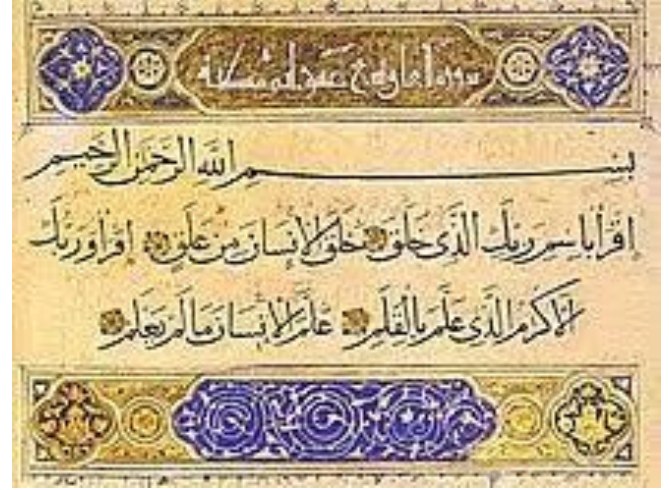 سورة العلق
بسم الله الرحمن الرحيم
اقرأ باسم ربك الذي خلق خلق الإنسان من علق اقرأ وربك
الأكرم الذي علم بالقلم علم الإنسان ما لم يعلم